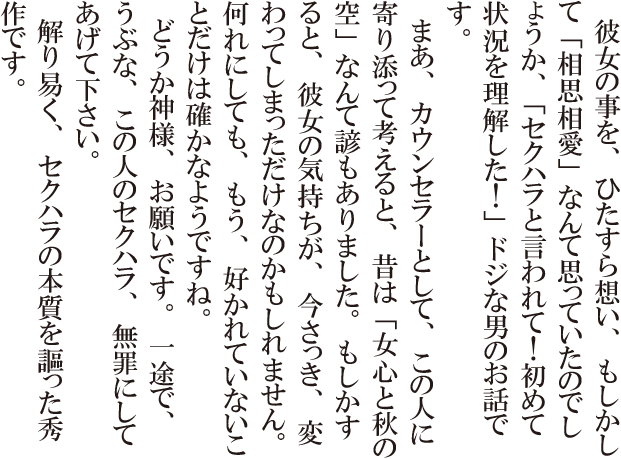 彼女の事を、ひたすら想い、もしかし
て「相思相愛」なんて思っていたのでし
ょうか、「セクハラと言われて！初めて
状況を理解した！」ドジな男のお話で
す。
まあ、カウンセラーとして、この人に
寄り添って考えると、昔は「女心と秋の
空」なんて諺もありました。もしかす
ると、彼女の気持ちが、今さっき、変
わってしまっただけなのかもしれません。
何れにしても、もう、好かれていないこ
とだけは確かなようですね。
どうか神様、お願いです。一途で、
うぶな、この人のセクハラ、無罪にして
あげて下さい。
解り易く、セクハラの本質を謳った秀
作です。